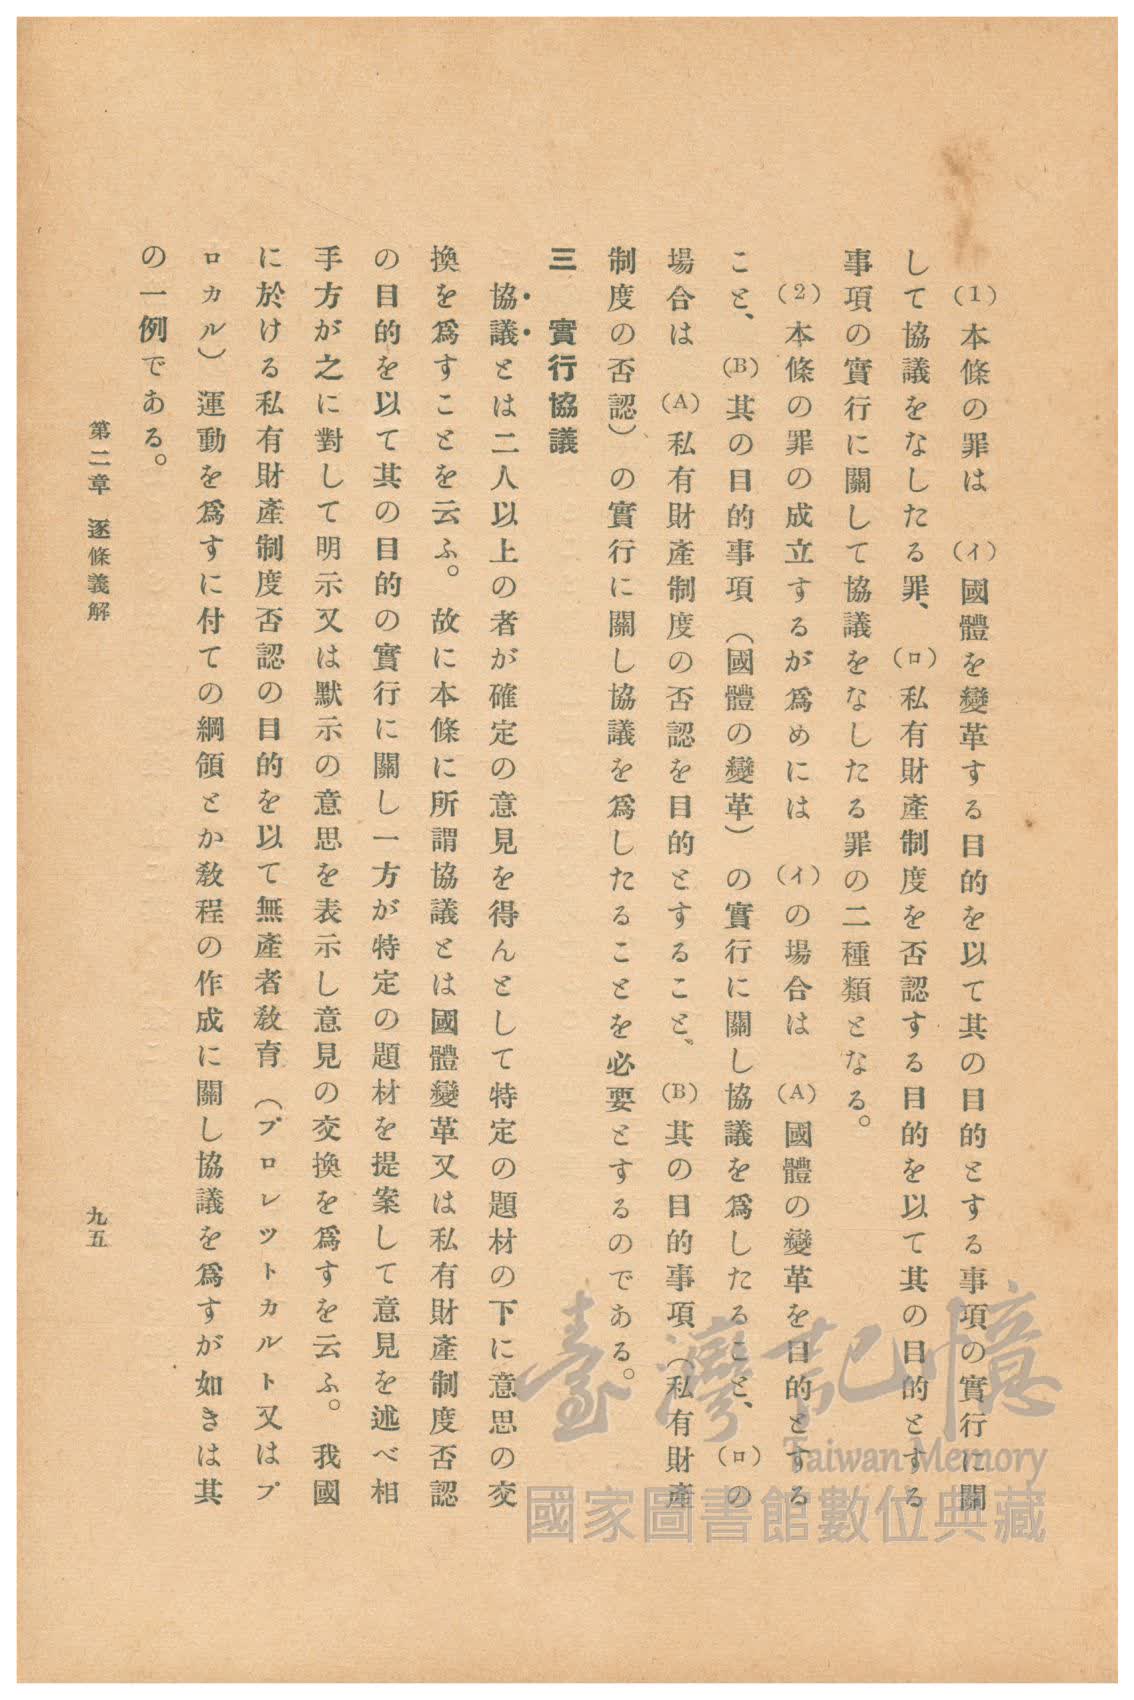 (1)本條の罪は　(イ)國體を變革する目的を以て其の目的とする事項の實行に關
して協議をなしたる罪、(ロ)私有財產制度を否認する目的を以て其の目的とする
事項の實行に關して協議をなしたる罪の二種類となる。
(2)本條の罪の成立するが爲めには　(イ)の場合は　(A)國體の變革を目的とする
こと、(B)其の目的事項（國體の變革）の實行に關し協議を爲したること、(ロ)の
場合は　(A)私有財產制度の否認を目的とすること、(B)其の目的事項（私有財產
制度の否認）の實行に關し協議を爲したることを必要とするのである。
三　實行協議
協議とは二人以上の者が確定の意見を得んとして特定の題材の下に意思の交
換を爲すことを云ふ。故に本條に所謂協議とは國體變革又は私有財產制度否認
の目的を以て其の目的の實行に關し一方が特定の題材を提案して意見を述べ相
手方が之に對して明示又は默示の意思を表示し意見の交換を爲すを云ふ。我國
に於ける私有財產制度否認の目的を以て無產者敎育（プロレツトカルト又はプ
ロカル）運動を爲すに付ての綱領とか敎程の作成に關し協議を爲すが如きは其
の一例である。
第二章　逐條義解
九五
臺灣記憶
Taiwan Memory
國家圖書館數位典藏